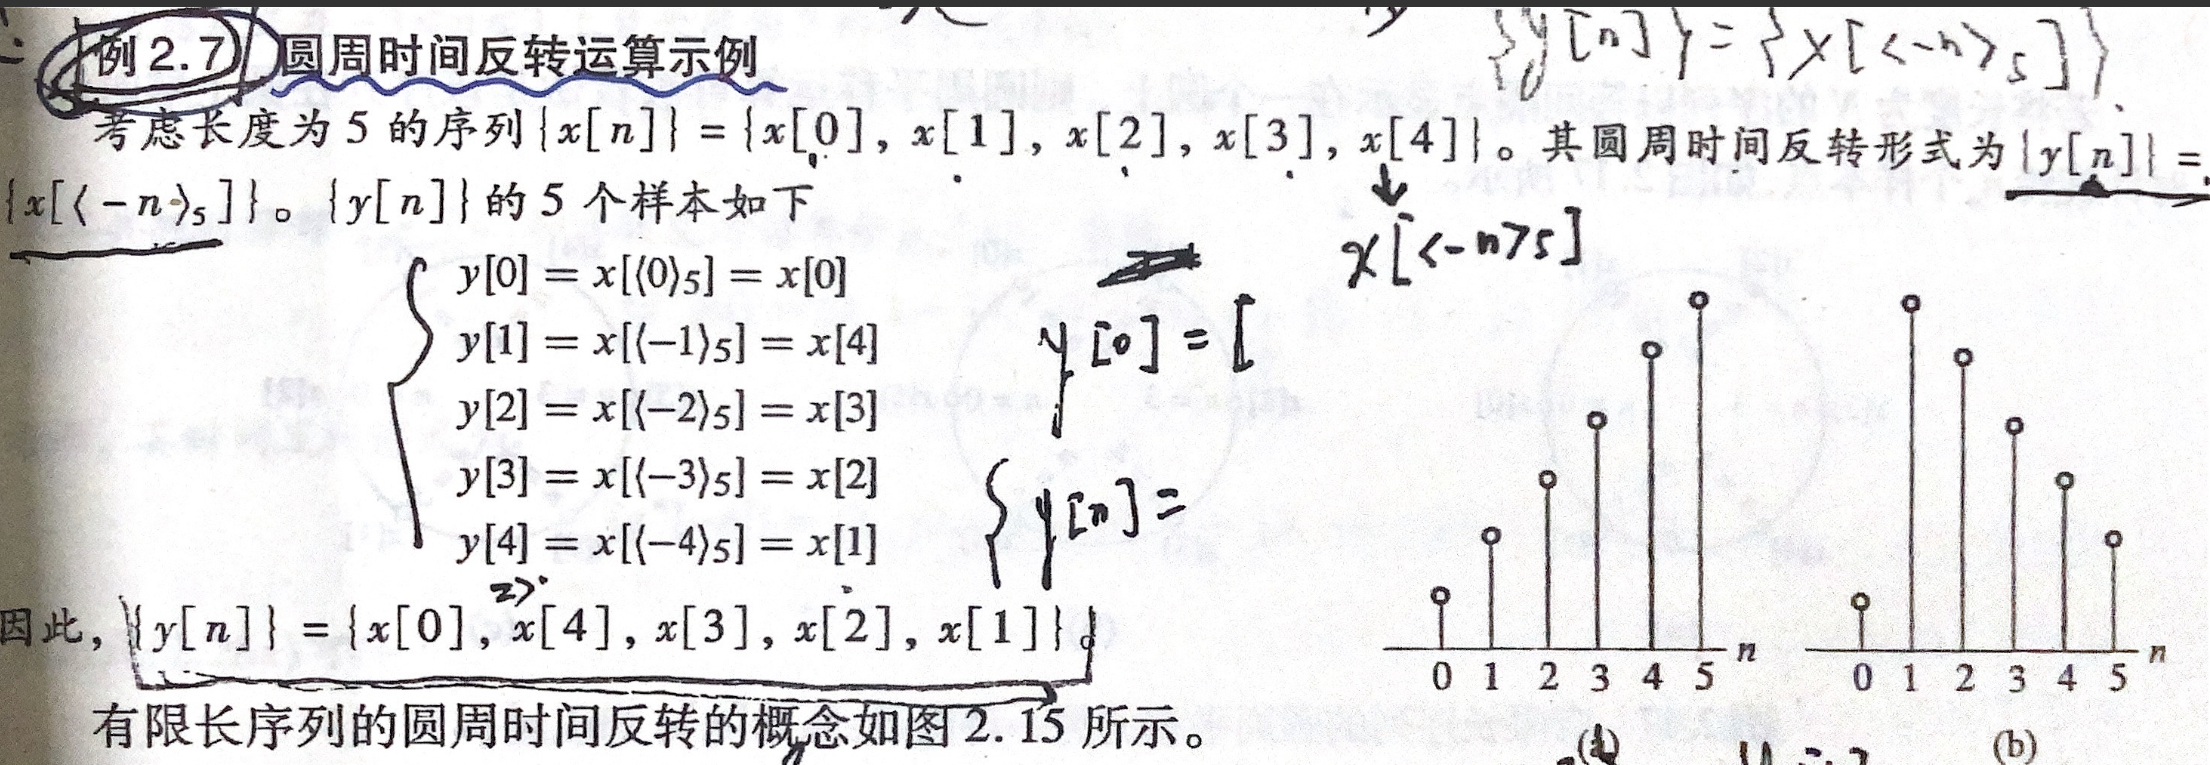 {y[n]} = {x[<-n>₅]}
例2.7 圆周时间反转运算示例
考虑长度为 5 的序列{x[n]} = {x[0], x[1], x[2], x[3], x[4]}。其圆周时间反转形式为{y[n]} =
{x[⟨-n⟩₅]}。{y[n]}的 5 个样本如下
x[<-n>5]
y[0] = x[⟨0⟩₅] = x[0]
y[1] = x[⟨−1⟩₅] = x[4]
y[2] = x[⟨−2⟩₅] = x[3]
y[3] = x[⟨−3⟩₅] = x[2]
y[4] = x[⟨−4⟩₅] = x[1]
y[0] = [
{y[n] =
因此, {y[n]} = {x[0], x[4], x[3], x[2], x[1]}。
有限长序列的圆周时间反转的概念如图 2.15 所示。
n
0 1 2 3 4 5
n
0 1 2 3 4 5
(b)